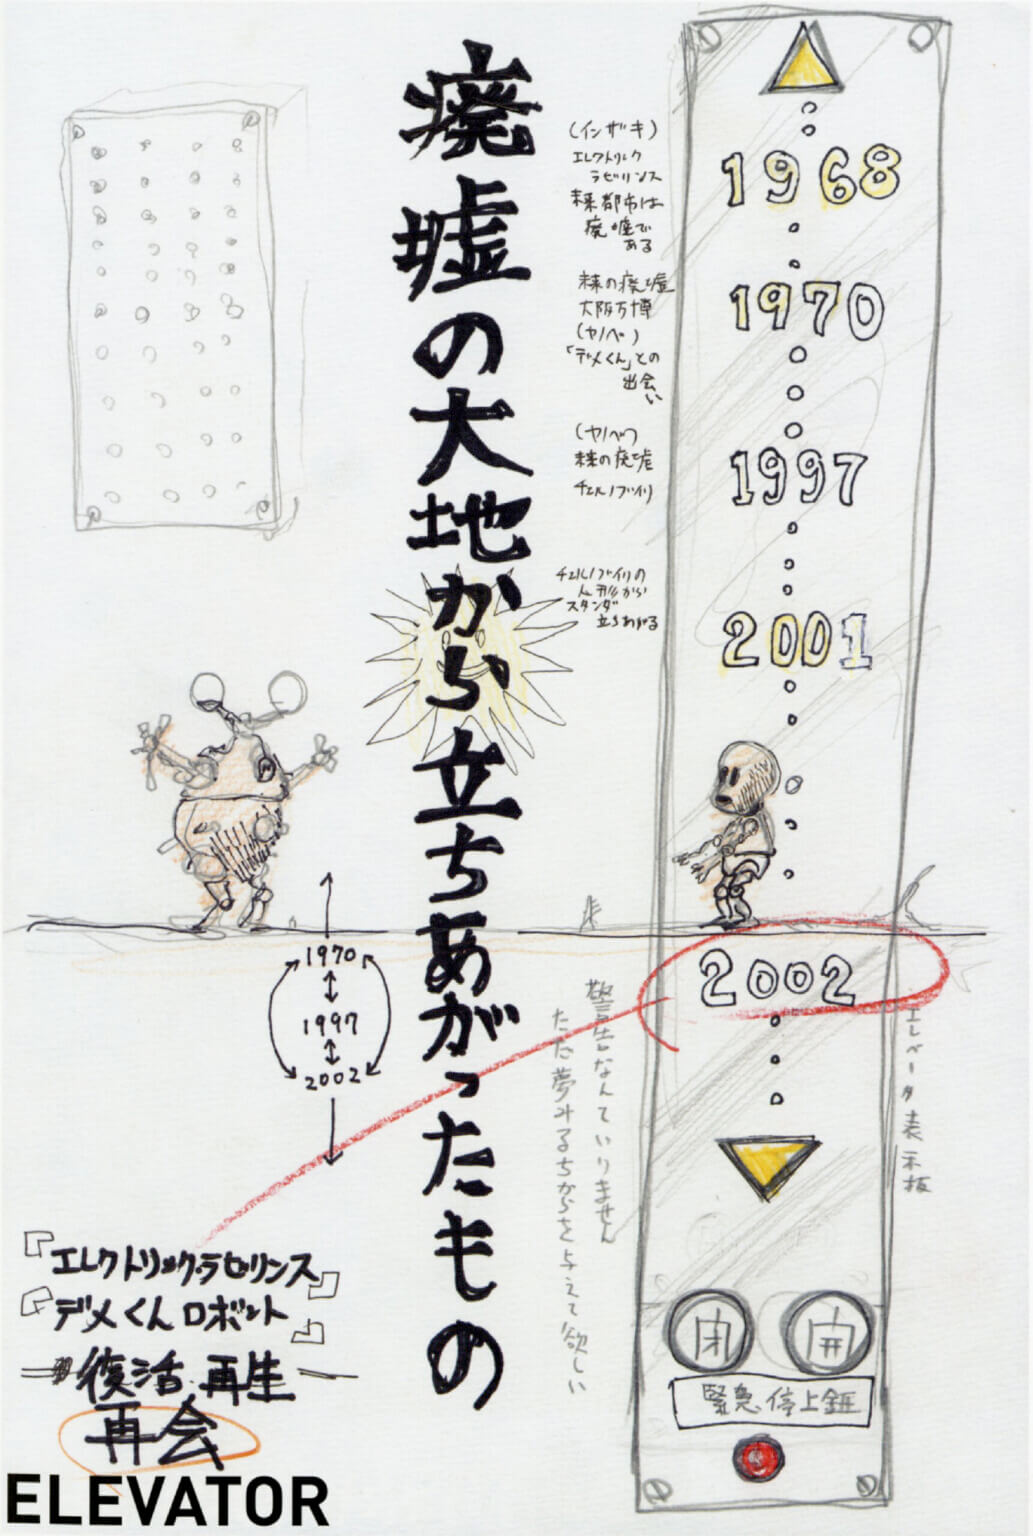 廃墟の大地から立ちあがったもの
(イソザキ)
エレクトリック
ラビリンス
未来都市は
廃墟で
ある
未来の廃墟
大阪万博
(ヤノベ)
「デメくん」との
出会い
(ヤノベ)
未来の廃墟
チェルノブイリ
チェルノブイリの
人形から
スタンダ
立ちあがる
1968
1970
1997
2001
2002
エレベータ表示板
警告なんていりません
ただ夢みるちからを与えて欲しい
1970
1997
2002
『エレクトリック・ラビリンス』
『デメくんロボット』
復活 再生
再会
閉
開
緊急停止釦
ELEVATOR